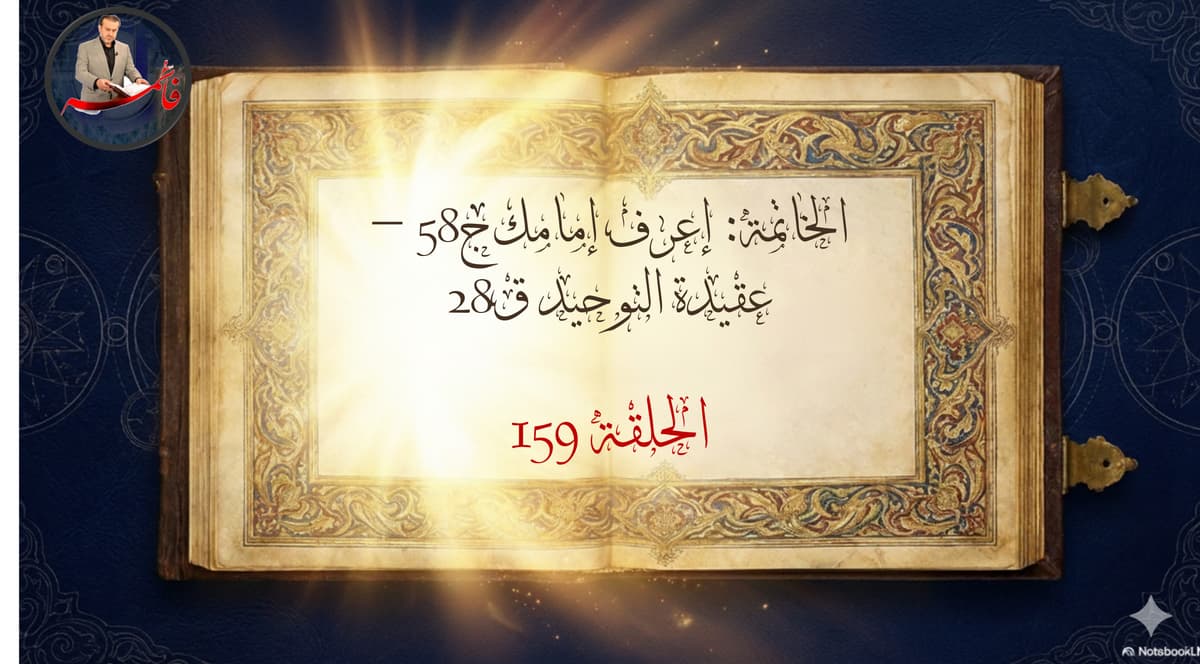 فاطمة
الخاتمة: إعرف إمامك ج58 –
عقيدة التوحيد ق28
الحلقة 159
NotsbookLM